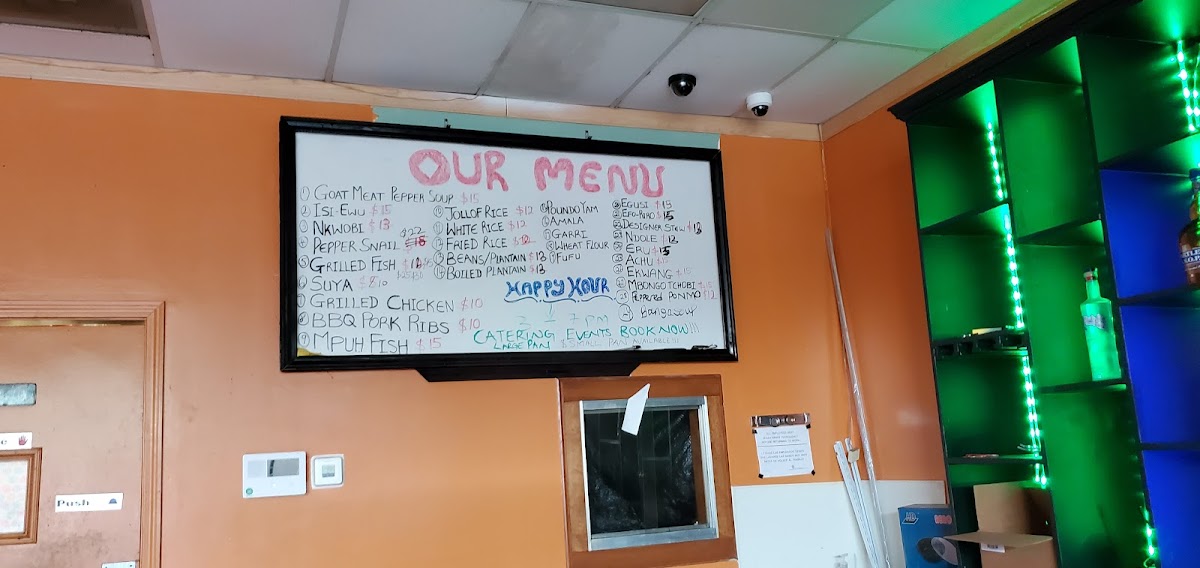 OUR MENU
① GOAT MEAT PEPPER SOUP $15
② ISI-EWU $15
③ NKWOBI $13
④ PEPPER SNAIL $22
⑤ GRILLED FISH
⑥ SUYA
⑦ GRILLED CHICKEN $10
⑧ BBQ PORK RIBS $10
⑨ MPUH FISH $15
⑩ JOLLOF RICE $12
⑪ WHITE RICE $12
⑫ FRIED RICE $12
⑬ BEANS/PLANTAIN $13
⑭ BOILED PLANTAIN $13
POUNDO YAM
AMALA
GARRI
WHEAT FLOUR
FUFU
EGUSI $15
EFO-RIRO $15
DESIGNER STEW $13
NDOLE $13
ERU $15
ACHU
EKWANG $15
MBONGO TCHOBI
PEPPERED PONMO
HAPPY HOUR
3 - 7 PM
CATERING EVENTS BOOK NOW!!!
LARGE PAN & SMALL PAN AVAILABLE!!!
Push